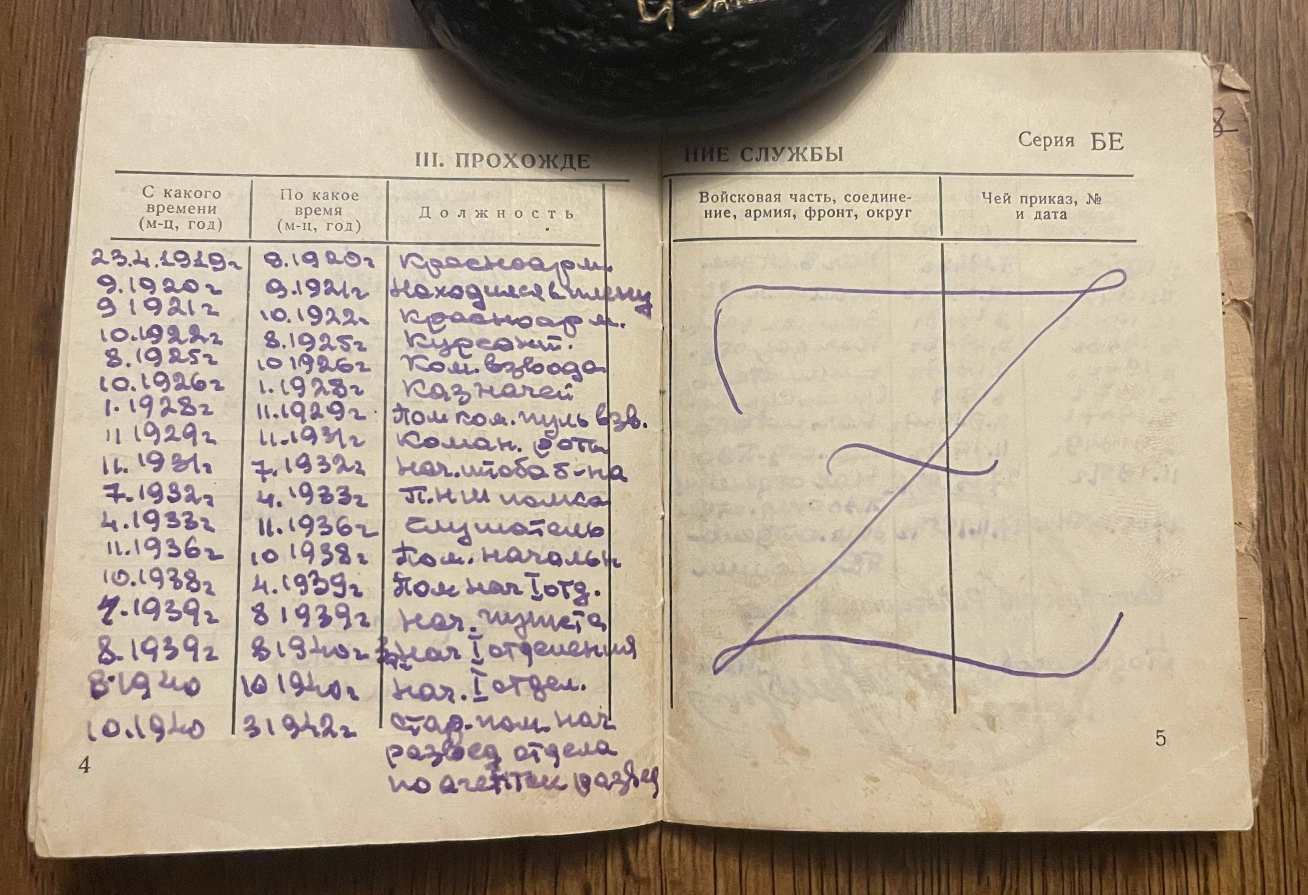 III. ПРОХОЖДЕНИЕ СЛУЖБЫ
Серия БЕ
С какого времени (м-ц, год)
По какое время (м-ц, год)
Должность
Войсковая часть, соединение, армия, фронт, округ
Чей приказ, № и дата
23.4.1919г 9.1920г Красноарм.
9.1920г 9.1921г Находился в плену
9 1921г 10.1922г Красноарм.
10.1922г 8.1925г Курсант.
8.1925г 10 1926г Ком. взвода
10.1926г 1.1928г Казначей
1.1928г 11.1929г Пом ком. пуль взв.
11 1929г 11.1931г Коман. роты
11.1931г 7.1932г Нач. штаба б-на
7.1932г 4.1933г П.НШ полка
4.1933г 11.1936г Слушатель
11.1936г 10 1938г Пом. начальн
10.1938г 4.1939г Пом нач I отд.
4.1939г 8 1939г Нач. пункта
8.1939г 8 1940г Нач I отделения
8.1940 10 1940г Нач. I отдел.
10.1940 3 1942г Стар. пом. нач
развед отдела
по агентен развед
4
5